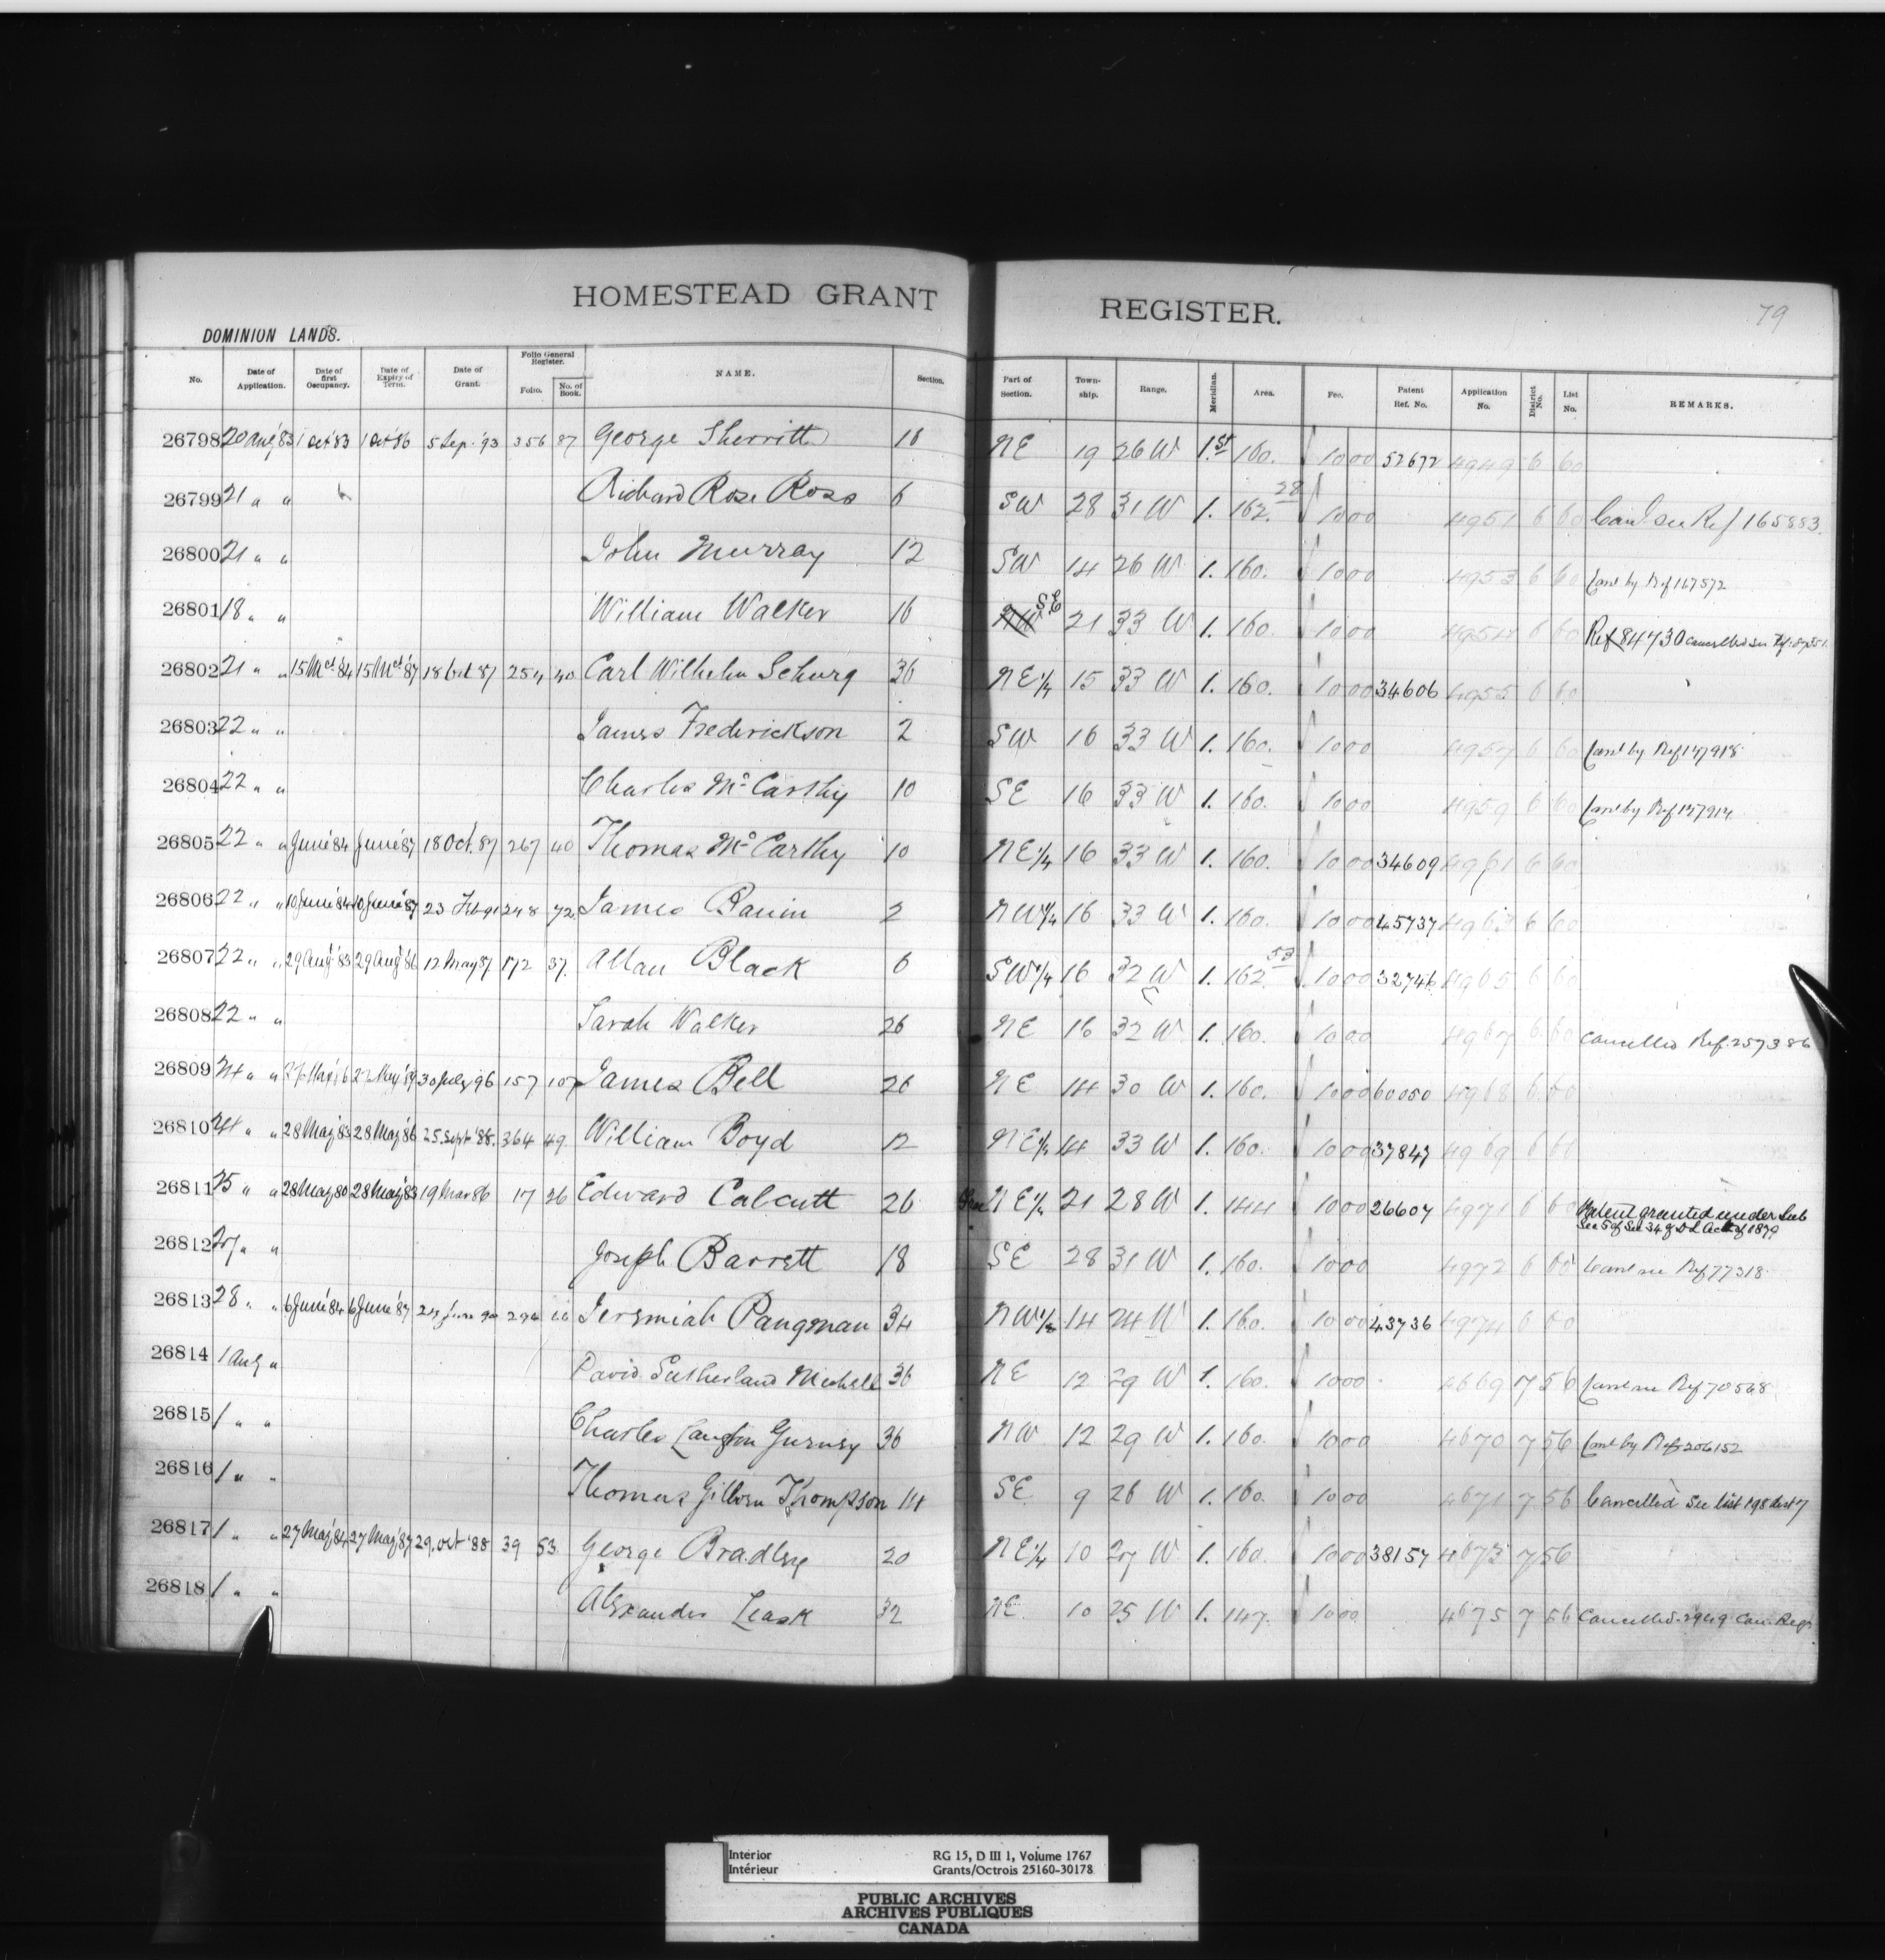 HOMESTEAD GRANT REGISTER.
79
DOMINION LANDS.
No. Date of Application. Date of first Occupancy. Date of Expiry of Term. Date of Grant. Folio General Register. Folio. No. of Book. NAME. Section. Part of Section. Town-ship. Range. Meridian. Area. Fee. Patent Ref. No. Application No. District No. List No. REMARKS.
26798 20 Aug '83 1 Oct '83 1 Oct '86 5 Sep. '93 356 87 George Sherritt 18 NE 19 26 W 1.st 160. 10 00 52672 4949 6 60
26799 21 " " Richard Rose Ross 6 SW 28 31 W 1. 162.28 10 00 4951 6 60 Canl. see Ref 165883.
26800 21 " " John Murray 12 SW 14 26 W 1. 160. 10 00 4953 6 60 Canl by Ref 167572
26801 18 " " William Walker 16 NW SE 21 33 W 1. 160. 10 00 4954 6 60 Ref 84730 cancelled see Ref.
26802 21 " " 15 Mch '84 15 Mch '87 18 Oct 87 254 40 Carl Wilhelm Schurg 36 NE 1/4 15 33 W 1. 160. 10 00 34606 4955 6 60
26803 22 " " James Frederickson 2 SW 16 33 W 1. 160. 10 00 4957 6 60 Canl by Ref 147918
26804 22 " " Charles McCarthy 10 SE 16 33 W 1. 160. 10 00 4959 6 60 Canl by Ref 147914
26805 22 " " June '84 June '87 18 Oct. 87 267 40 Thomas McCarthy 10 NE 1/4 16 33 W 1. 160. 10 00 34609 4961 6 60
26806 22 " " 10 June '84 10 June '87 23 Feb 91 248 72 James 2 NW 1/4 16 33 W 1. 160. 10 00 45737 4963 6 60
26807 22 " " 29 Aug '83 29 Aug '86 12 May 87 172 37. Allan Black 6 SW 1/4 16 32 W 1. 162.53 10 00 32746 4965 6 60
26808 22 " " Sarah Walker 26 NE 16 32 W 1. 160. 10 00 4967 6 60 Cancelled Ref. 257386
26809 24 " " 30 July '96 157 107 James Bell 26 NE 14 30 W 1. 160. 10 00 60050 4968 6 60
26810 24 " " 28 May 83 28 May '86 25. Sept '88. 364 49. William Boyd 12 NE 1/4 14 33 W 1. 160. 10 00 37847 4969 6 60
26811 25 " " 28 May 80 28 May '83 19 Mar 86 17 26 Edward Calcutt 26 NE 1/4 21 28 W 1. 144 10 00 26607 4971 6 60 Patent granted under Sub
Sec 5 of Sec 34 of D L Act of 1879
26812 27 " " Joseph Barrett 18 SE 28 31 W 1. 160. 10 00 4972 6 60 Canl see Ref 77318
26813 28 " " 6 June '84 6 June '87 90 294 66 Jeremiah Pangman 34 NW 1/4 14 24 W 1. 160. 10 00 43736 4974 6 60
26814 1 Aug " David Sutherland Michell 36 NE 12 29 W 1. 160. 10 00 4669 7 56 Canl see Ref 70568
26815 1 " " Charles Langton Gurney 36 NW 12 29 W 1. 160. 10 00 4670 7 56 Canl by Ref 206152
26816 1 " " Thomas Thompson 14 SE 9 26 W 1. 160. 10 00 4671 7 56 Cancelled See list 198 dist 7
26817 1 " " 27 May '84 27 May '87 29. Oct '88 39 53. George Bradley 20 NE 1/4 10 27 W 1. 160. 10 00 38157 4673 7 56
26818 1 " " Alexander Leask 32 NE 10 25 W 1. 147. 10 00 4675 7 56 Cancelled 2949 Can. Regr
Interior RG 15, D III 1, Volume 1767
Intérieur Grants/Octrois 25160-30178
PUBLIC ARCHIVES
ARCHIVES PUBLIQUES
CANADA